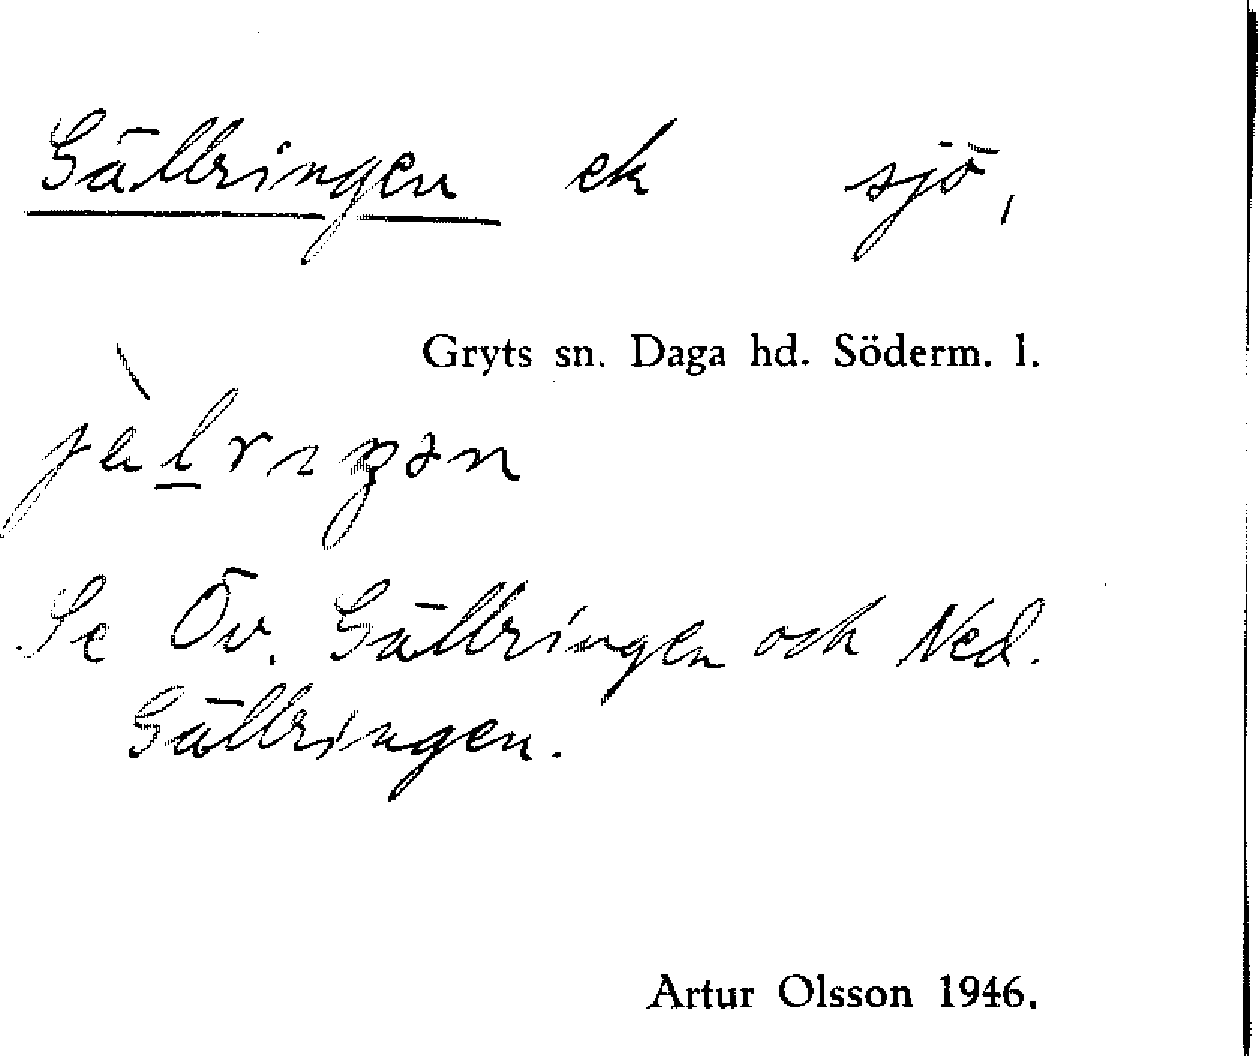 Gällringen ek sjö,
Gryts sn. Daga hd. Söderm. l.
Se Öv. Gällringen och Ned.
Gällringen.
Artur Olsson 1946.